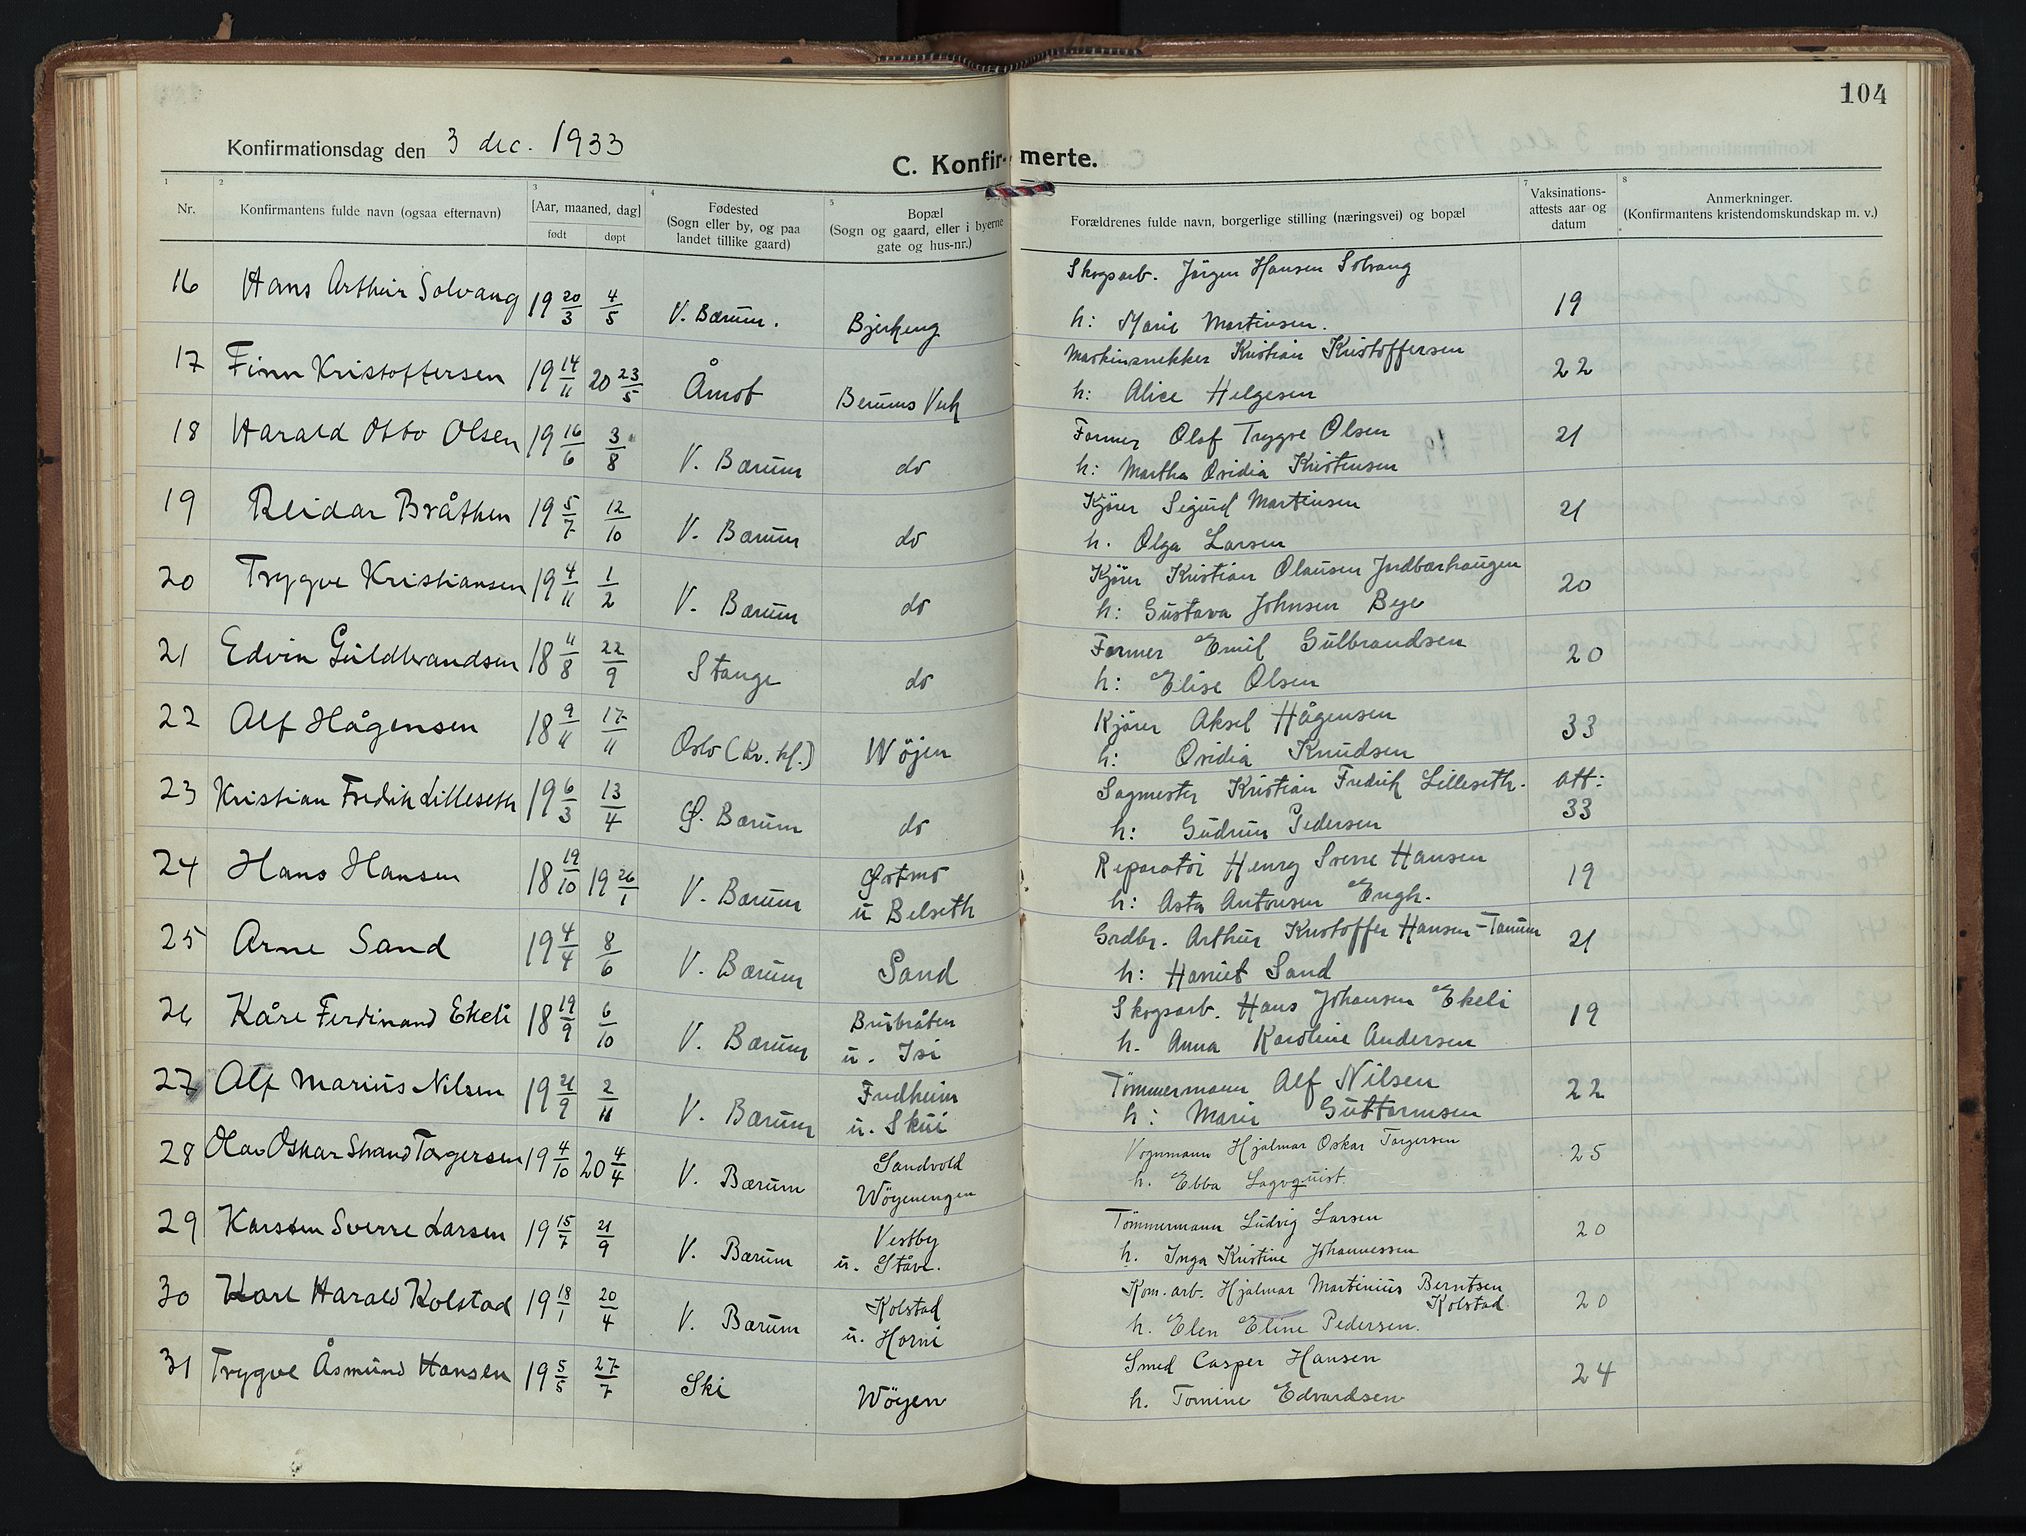 104
Konfirmationsdag den 3 dec. 1933
C. Konfirmerte.
1 2 3 4 5 7 8
Nr. Konfirmantens fulde navn (ogsaa efternavn) [Aar, maaned, dag] født døpt Fødested (Sogn eller by, og paa landet tillike gaard) Bopæl (Sogn og gaard, eller i byerne gate og hus-nr.) Forældrenes fulde navn, borgerlige stilling (næringsvei) og bopæl Vaksinations-attests aar og datum Anmerkninger. (Konfirmantens kristendomskundskap m. v.)
16 Hans Arthur Solvang 19 20/3 4/5 V. Bærum. Bjerkeng Skogsarb. Jørgen Hansen Solvang 19
h: Marie Martinsen.
17 Finn Kristoffersen 19 14/11 20 23/5 Åmot Berums Verk Maskinsnekker Kristian Kristoffersen 22
h: Alice Helgesen
18 Harald Otto Olsen 19 16/6 3/8 V. Bærum do Former Olaf Trygve Olsen 21
h: Martha Ovidia Kristensen
19 Reidar Bråthen 19 5/7 12/10 V. Bærum do Kjører Sigurd Martinsen 21
h. Olga Larsen
20 Trygve Kristiansen 19 4/11 1/2 V. Bærum do Kjører Kristian Olausen Jordbærhaugen 20
h: Gustava Johnsen Bye
21 Edvin Guldbrandsen 18 4/8 22/9 Stange do Former Emil Gulbrandsen 20
h: Elise Olsen
22 Alf Hågensen 18 9/11 17/11 Oslo (Kv. kl.) Wøjen Kjører Aksel Hågensen 33
h: Ovidia Knudsen
23 Kristian Fredrik Lilleseth 19 6/3 13/4 Ø. Bærum do Sagmester Kristian Fredrik Lilleseth. att: 33
h: Gudrun Pedersen
24 Hans Hansen 18 19/10 19 26/1 V. Bærum Østmo u Belseth Reparatør Henry Sverre Hansen 19
h: Asta Antonsen Engh.
25 Arne Sand 19 4/4 8/6 V. Bærum Sand Grdbr. Arthur Kristoffer Hansen-Tanum 21
h: Harriet Sand
26 Kåre Ferdinand Ekeli 18 19/9 6/10 V. Bærum Brubråten u. Isi Skogsarb. Hans Johansen Ekeli 19
h. Anna Karoline Andersen
27 Alf Marius Nilsen 19 21/9 2/11 V. Bærum Fredheim u. Skui Tømmermann Alf Nilsen 22
h: Marie Guttormsen
28 Olav Oskar Strand Torgersen 19 4/10 20 4/4 V. Bærum Sandvold Wøyenengen Vognmann Hjalmar Oskar Torgersen 25
h. Ebba Lagvquist.
29 Karsten Sverre Larsen 19 15/7 21/9 V. Bærum Vestby u. Ståve. Tømmermann Ludvig Larsen 20
h. Inga Kristine Johannessen
30 Karl Harald Kolstad 19 18/1 20/4 V. Bærum Kolstad u. Horni Kom. arb. Hjalmar Martinius Berntsen Kolstad 20
h. Elen Eline Pedersen.
31 Trygve Åsmund Hansen 19 5/5 27/7 Ski Wøyen Smed Casper Hansen 24
h. Tomine Edvardsen